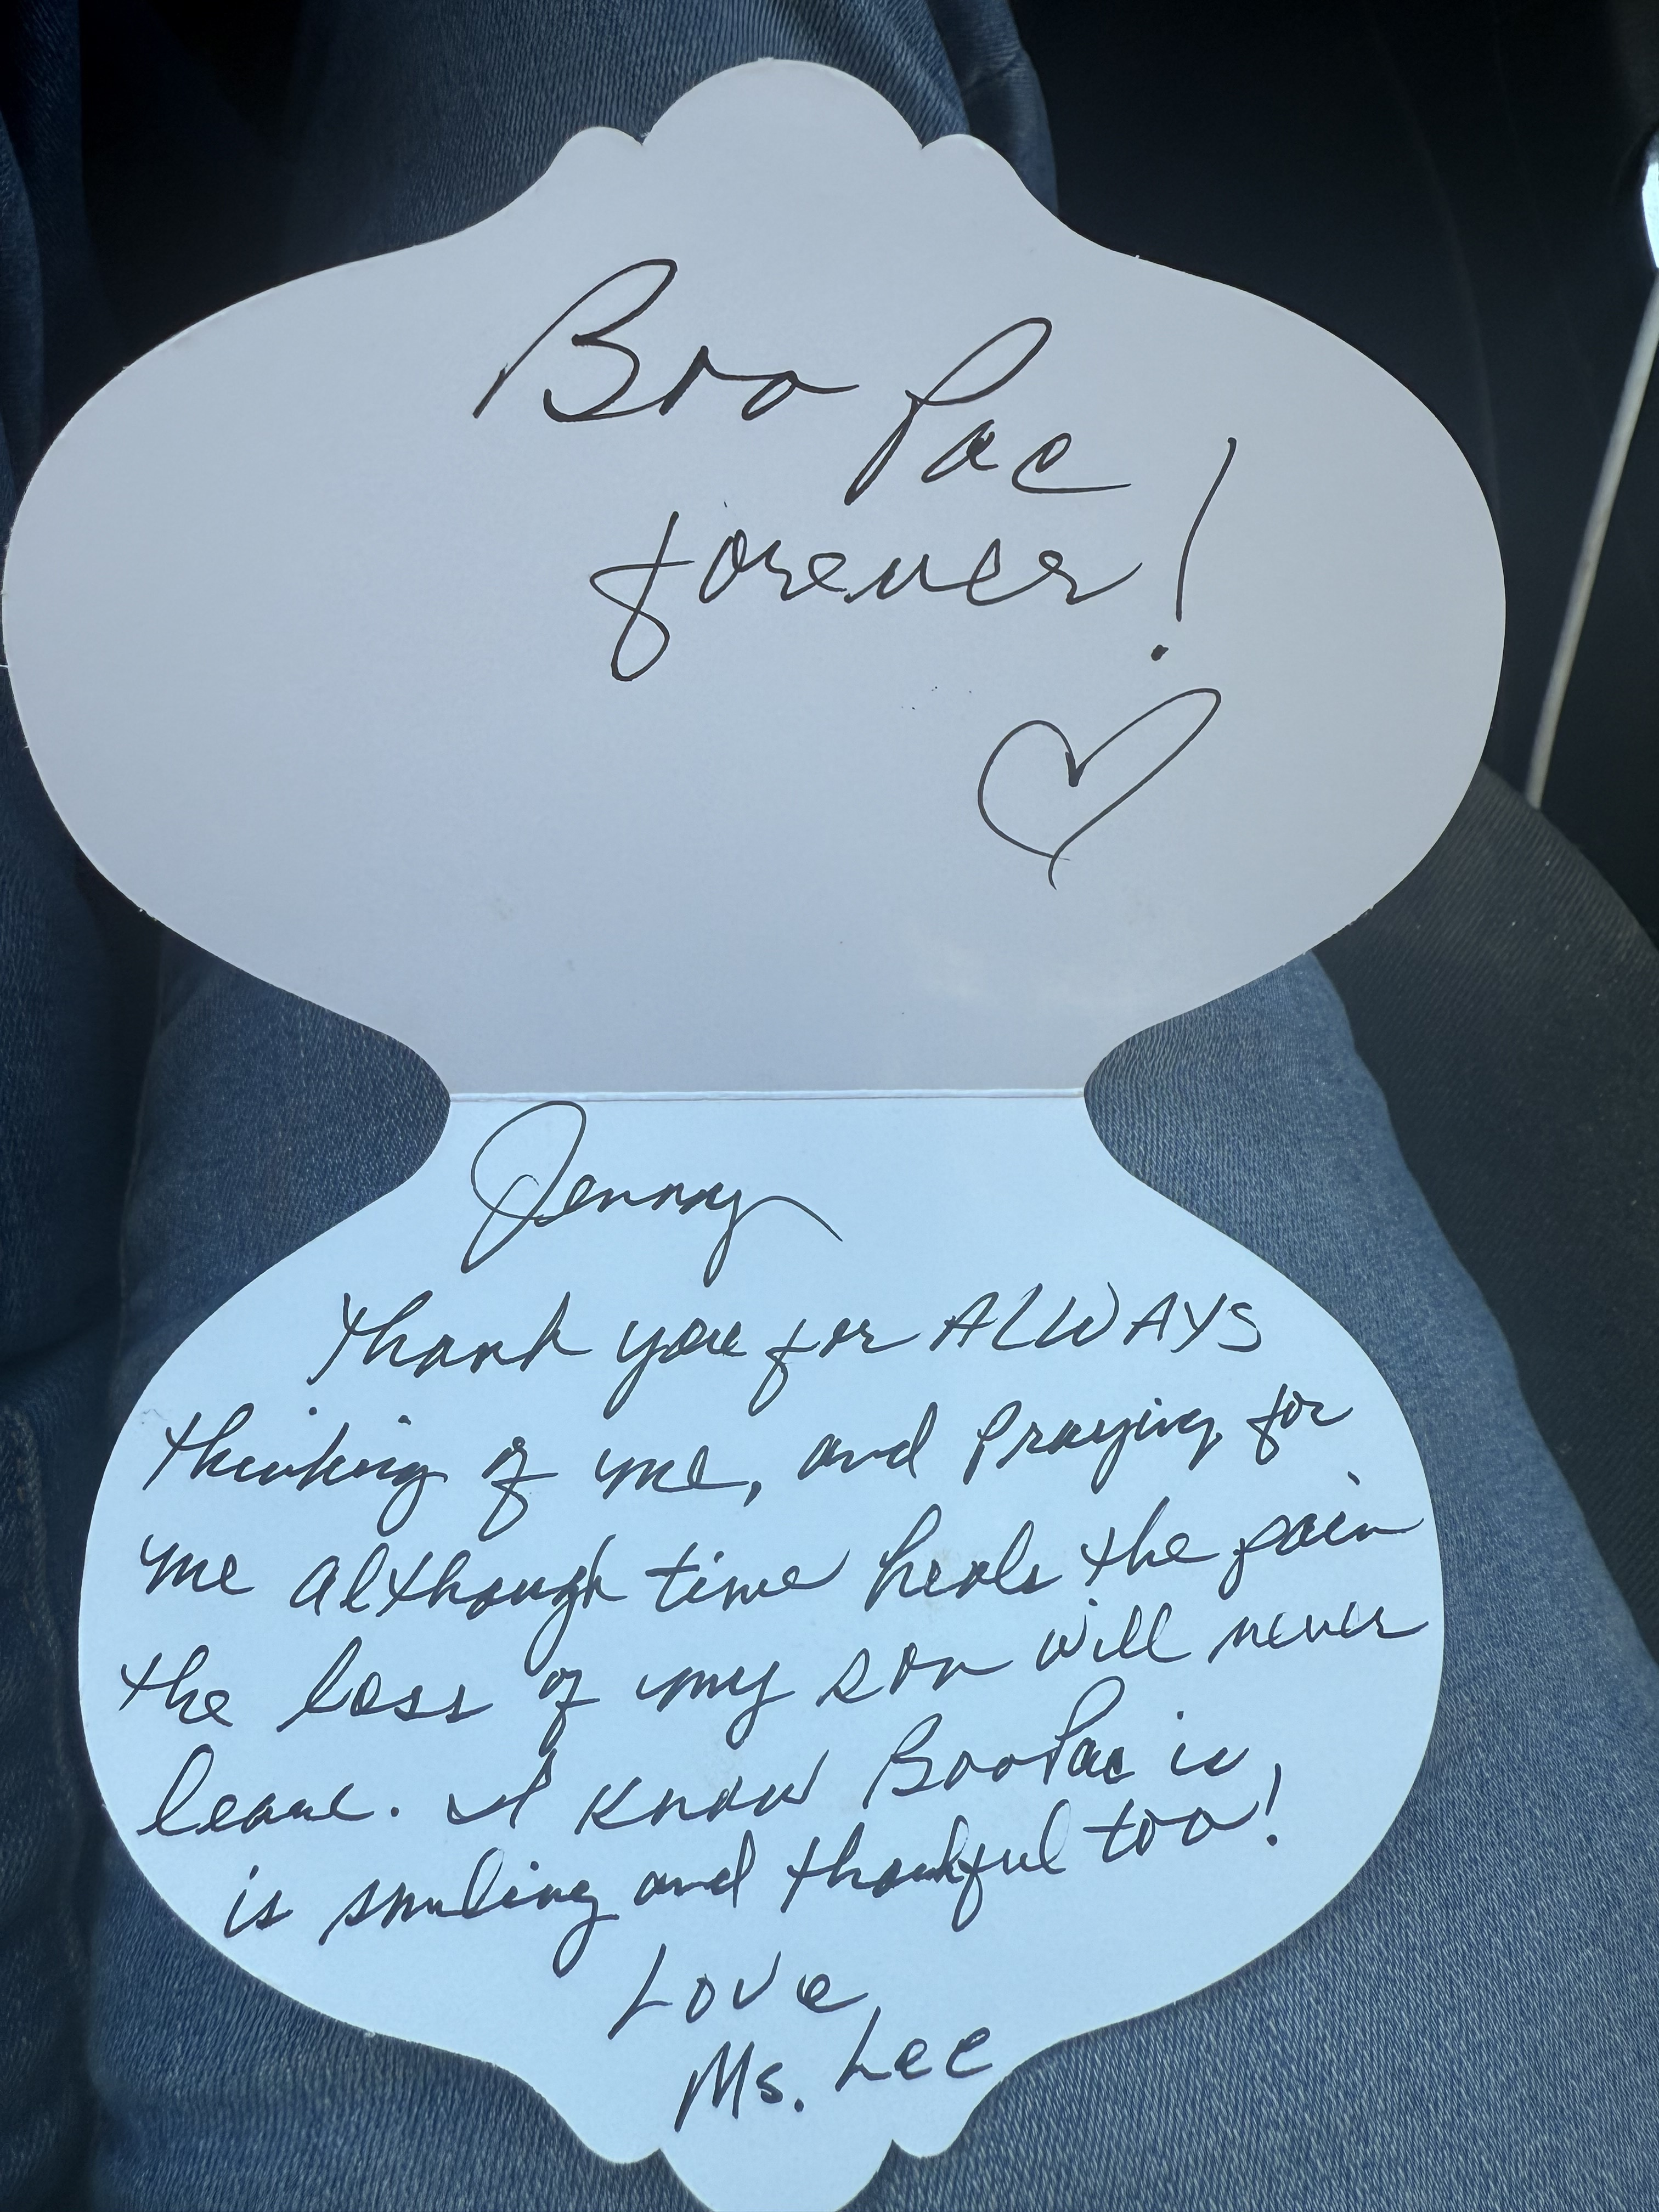 Boo Pac
forever!
Jenny
Thank you for ALWAYS
thinking of me, and Praying for
me although time heals the pain
the loss of my son will never
leave. I know BooPac is
is smiling and thankful too!
Love,
Ms. Lee